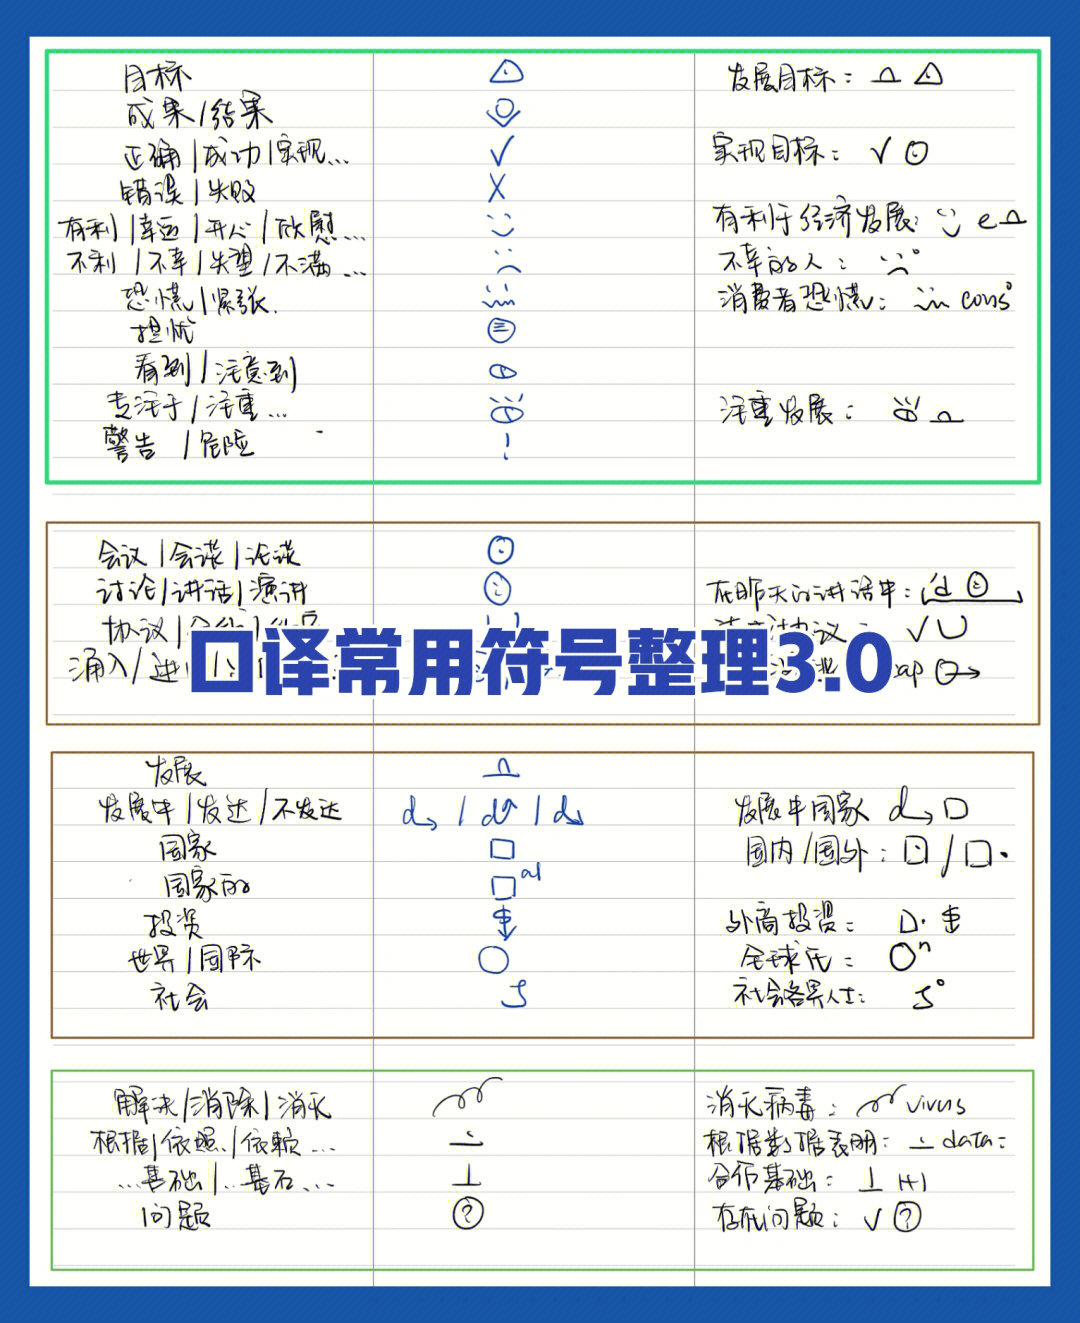 目标 发展目标：
成果/结果
正确/成功/实现... √ 实现目标： √
错误/失败 X
有利/幸运/开心/欣慰... 有利于经济发展： e
不利/不幸/失望/不满... 不幸的人：
恐慌/紧张. 消费者恐慌： cons°
担忧
看到/注意到
专注于/注重... 注重发展：
警告/危险 !
会议/会谈/论谈
讨论/讲话/演讲 在昨天的讲话中： 'd
协议/ 协议： √
涌入/进
口译常用符号整理3.0
发展
发展中/发达/不发达 d / d / d 发展中国家 d
国家 国内/国外： /
国家的 al
投资 $ 外商投资： $
世界/国际 全球化： n
社会 S 社会各界人士： S°
解决/消除/消灭 消灭病毒： virus
根据/依照/依赖... 根据数据表明： data:
...基础/...基石... 合作基础： H
问题 ? 存在问题： √ ?